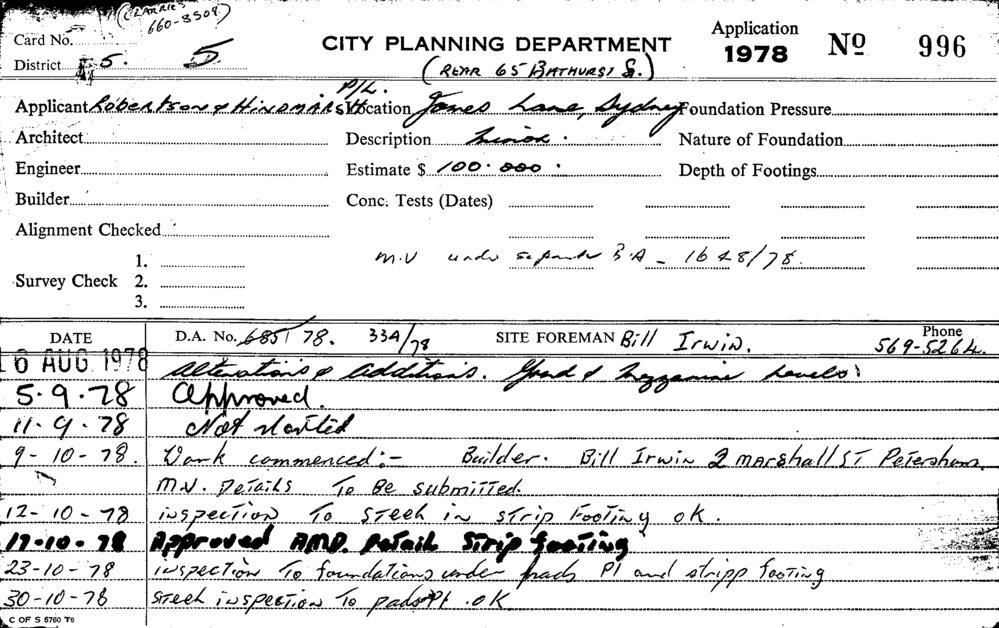 (CLARRIE)
660-8508)
Card No.
District 5. 5.
CITY PLANNING DEPARTMENT
(REAR 65 BATHURST St.)
Application
1978 Nº 996
Applicant Robertson & Hindmarsh P/L. Location Jones Lane, Sydney Foundation Pressure
Architect Description Minor. Nature of Foundation
Engineer Estimate $ 100.000. Depth of Footings
Builder Conc. Tests (Dates)
Alignment Checked
M.V under separate B.A - 1648/78.
Survey Check 1.
2.
3.
DATE D.A. No. 685/78. 334/78 SITE FOREMAN Bill Irwin. Phone 569-5264.
AUG 1978 Alterations & Additions. Grnd & Mezzanine Levels.
5.9.78 Approved.
11.9.78 Not started
9-10-78. Work commenced:- Builder. Bill Irwin 2 Marshall ST Petersham.
M.V. Details To Be submitted.
12-10-78 inspection To STEEL in STrip FooTing OK.
17-10-78 Approved AMD. Detail Strip footing
23-10-78 inspection To foundations under pads P1 and stripp footing
30-10-78 STEEL inspection To pads P1 .OK
C OF S 5760 T6